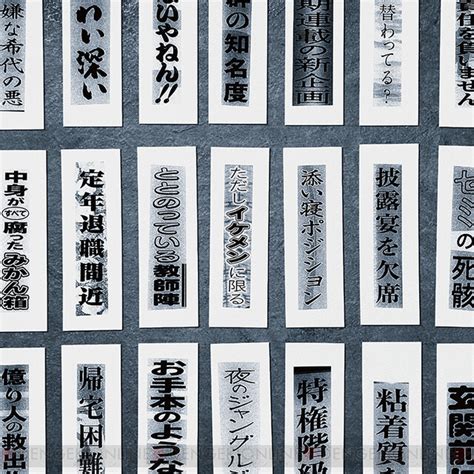 嫌な希代の悪
わい深い
いやねん!!
群の知名度
期連載の新企画
替わってる?
任を負いません
中身がすべて腐ったみかん箱
定年退職間近
ととのっている教師陣
ただしイケメンに限る
添い寝ポジション
披露宴を欠席
セミの死骸
億り人の救出
帰宅困難
お手本のような
夜のジャングル
特権階級
粘着質
玄関前